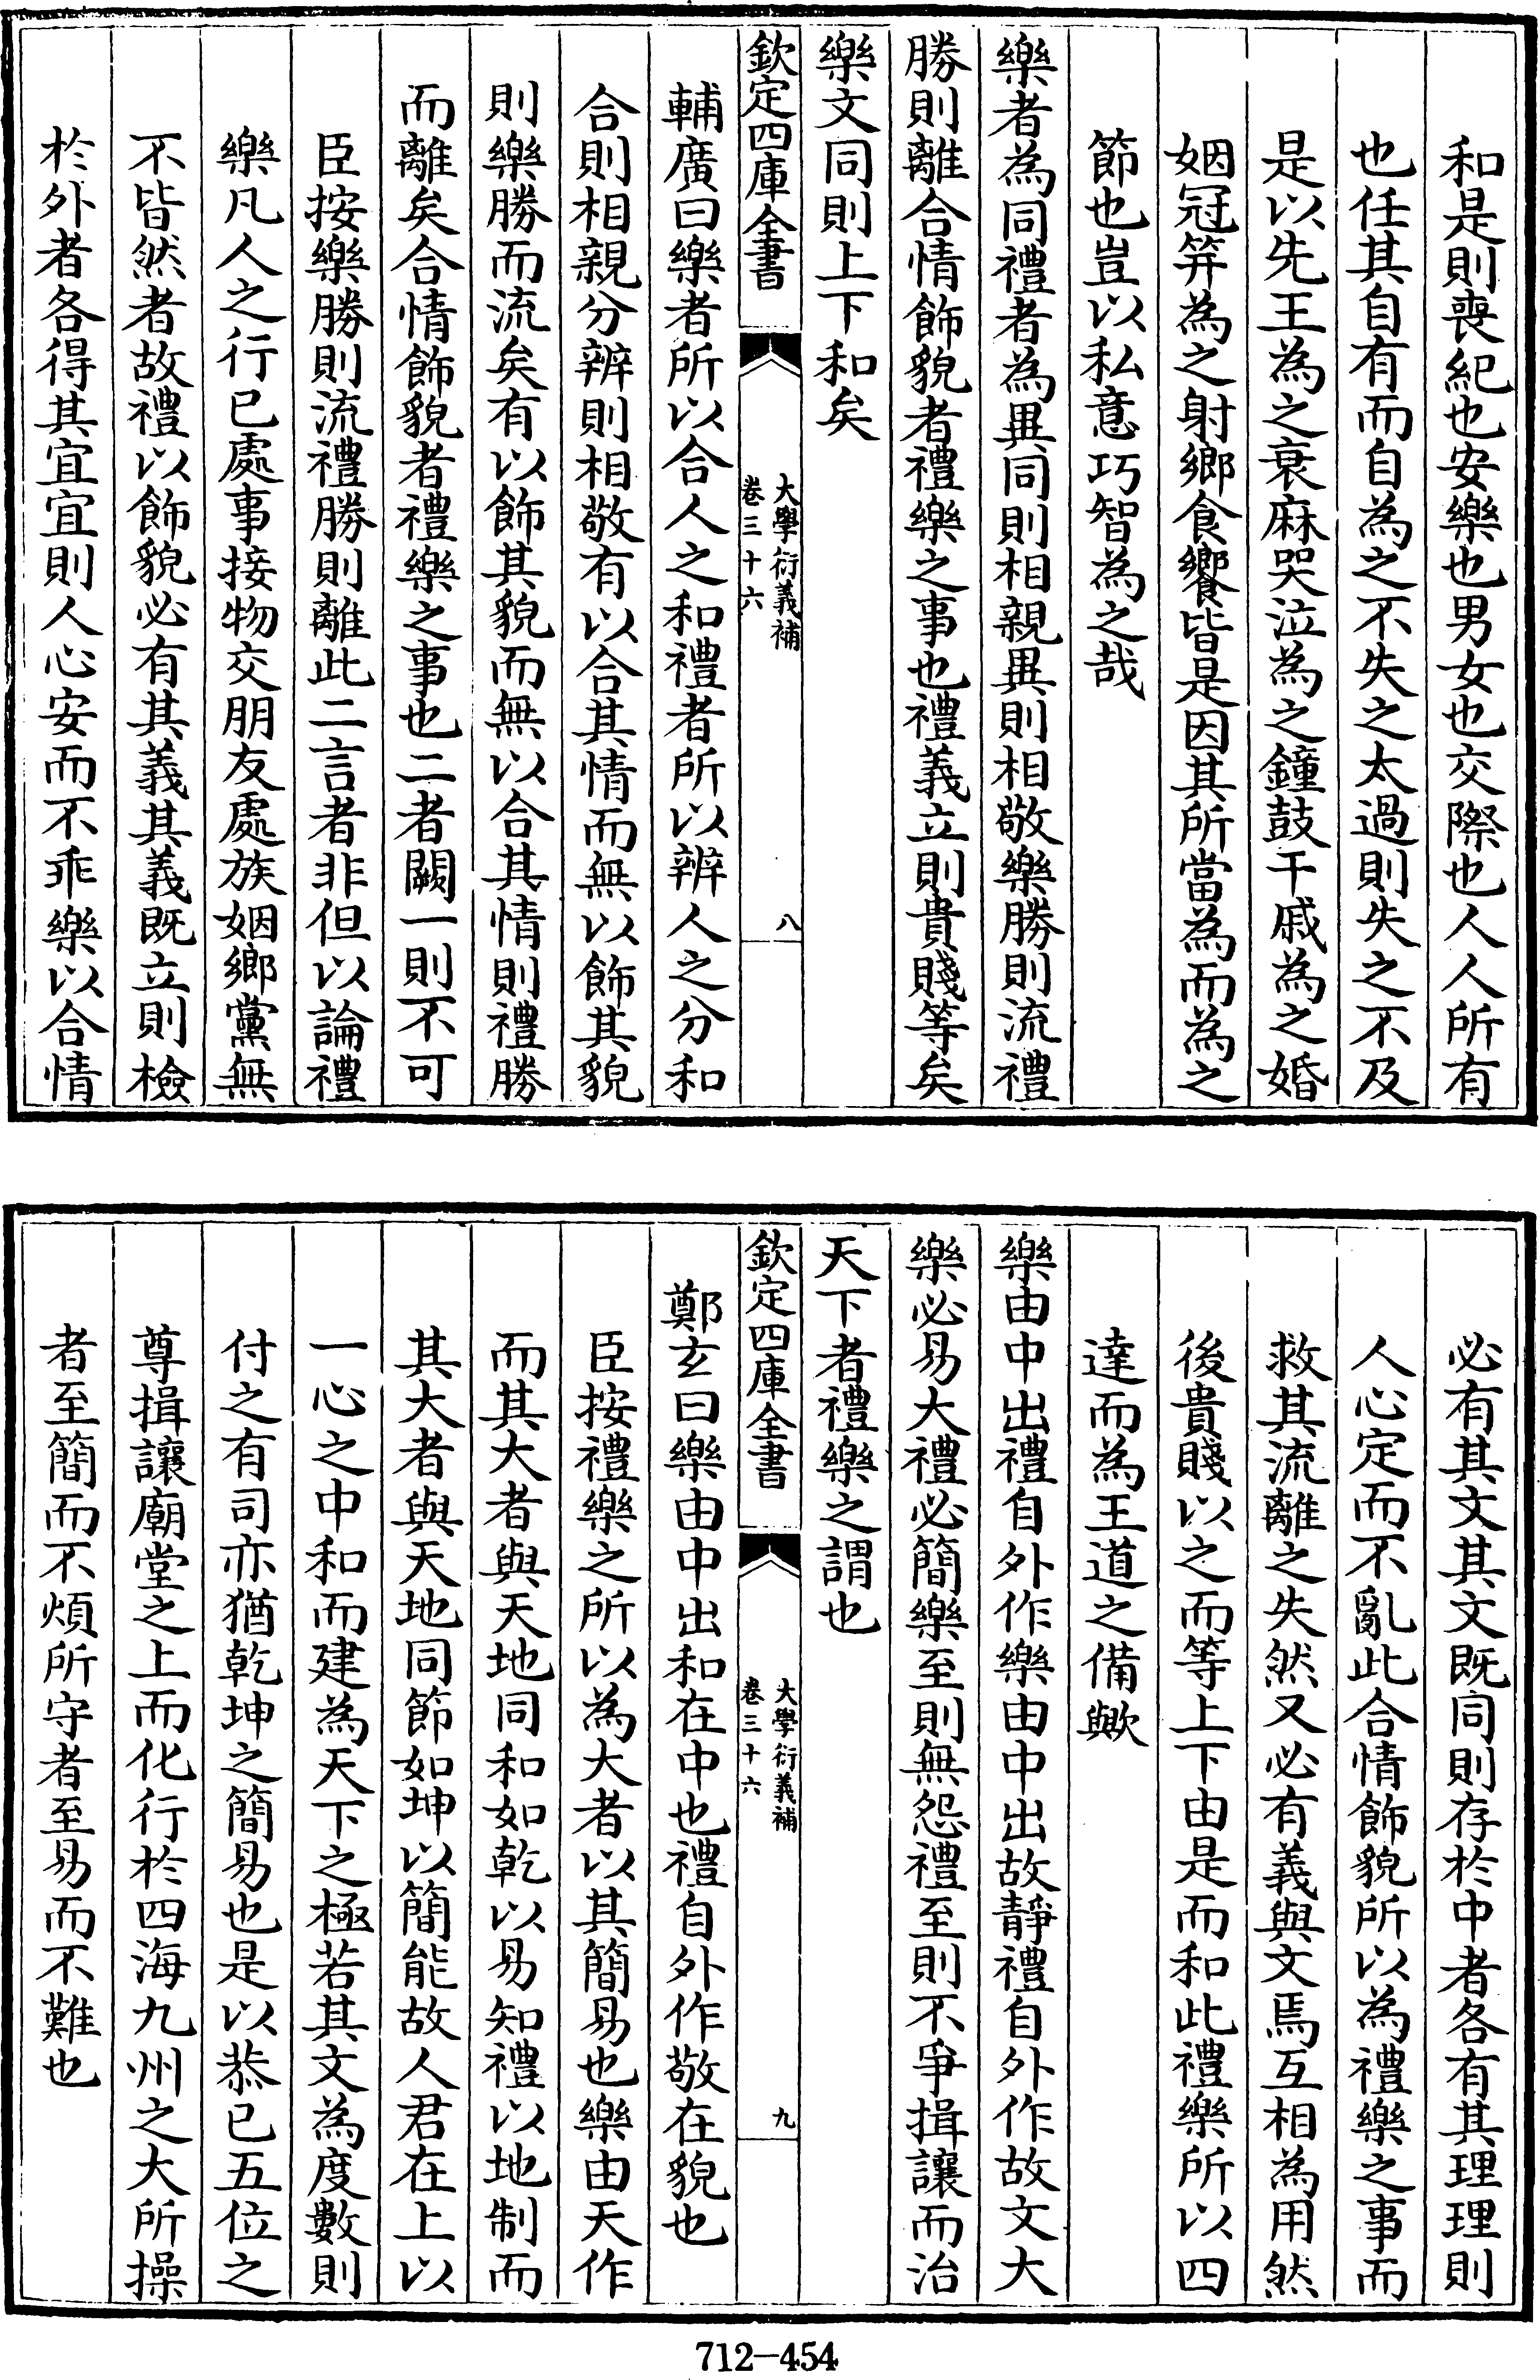 和是則喪紀也安樂也男女也交際也人人所有
也任其自有而自為之不失之太過則失之不及
是以先王為之衰麻哭泣為之鐘鼓干戚為之婚
姻冠笄為之射鄉食饗皆是因其所當為而為之
節也豈以私意巧智為之哉
樂者為同禮者為異同則相親異則相敬樂勝則流禮
勝則離合情飾貌者禮樂之事也禮義立則貴賤等矣
樂文同則上下和矣
欽定四庫全書
大學衍義補
卷三十六
八
輔廣曰樂者所以合人之和禮者所以辨人之分和
合則相親分辨則相敬有以合其情而無以飾其貌
則樂勝而流矣有以飾其貌而無以合其情則禮勝
而離矣合情飾貌者禮樂之事也二者闕一則不可
臣按樂勝則流禮勝則離此二言者非但以論禮
樂凡人之行已處事接物交朋友處族姻鄉黨無
不皆然者故禮以飾貌必有其義其義既立則檢
於外者各得其宜宜則人心安而不乖樂以合情
必有其文其文既同則存於中者各有其理理則
人心定而不亂此合情飾貌所以為禮樂之事而
救其流離之失然又必有義與文焉互相為用然
後貴賤以之而等上下由是而和此禮樂所以四
達而為王道之備歟
樂由中出禮自外作樂由中出故靜禮自外作故文大
樂必易大禮必簡樂至則無怨禮至則不爭揖讓而治
天下者禮樂之謂也
欽定四庫全書
大學衍義補
卷三十六
九
鄭玄曰樂由中出和在中也禮自外作敬在貌也
臣按禮樂之所以為大者以其簡易也樂由天作
而其大者與天地同和如乾以易知禮以地制而
其大者與天地同節如坤以簡能故人君在上以
一心之中和而建為天下之極若其文為度數則
付之有司亦猶乾坤之簡易也是以恭已五位之
尊揖讓廟堂之上而化行於四海九州之大所操
者至簡而不煩所守者至易而不難也
712-454